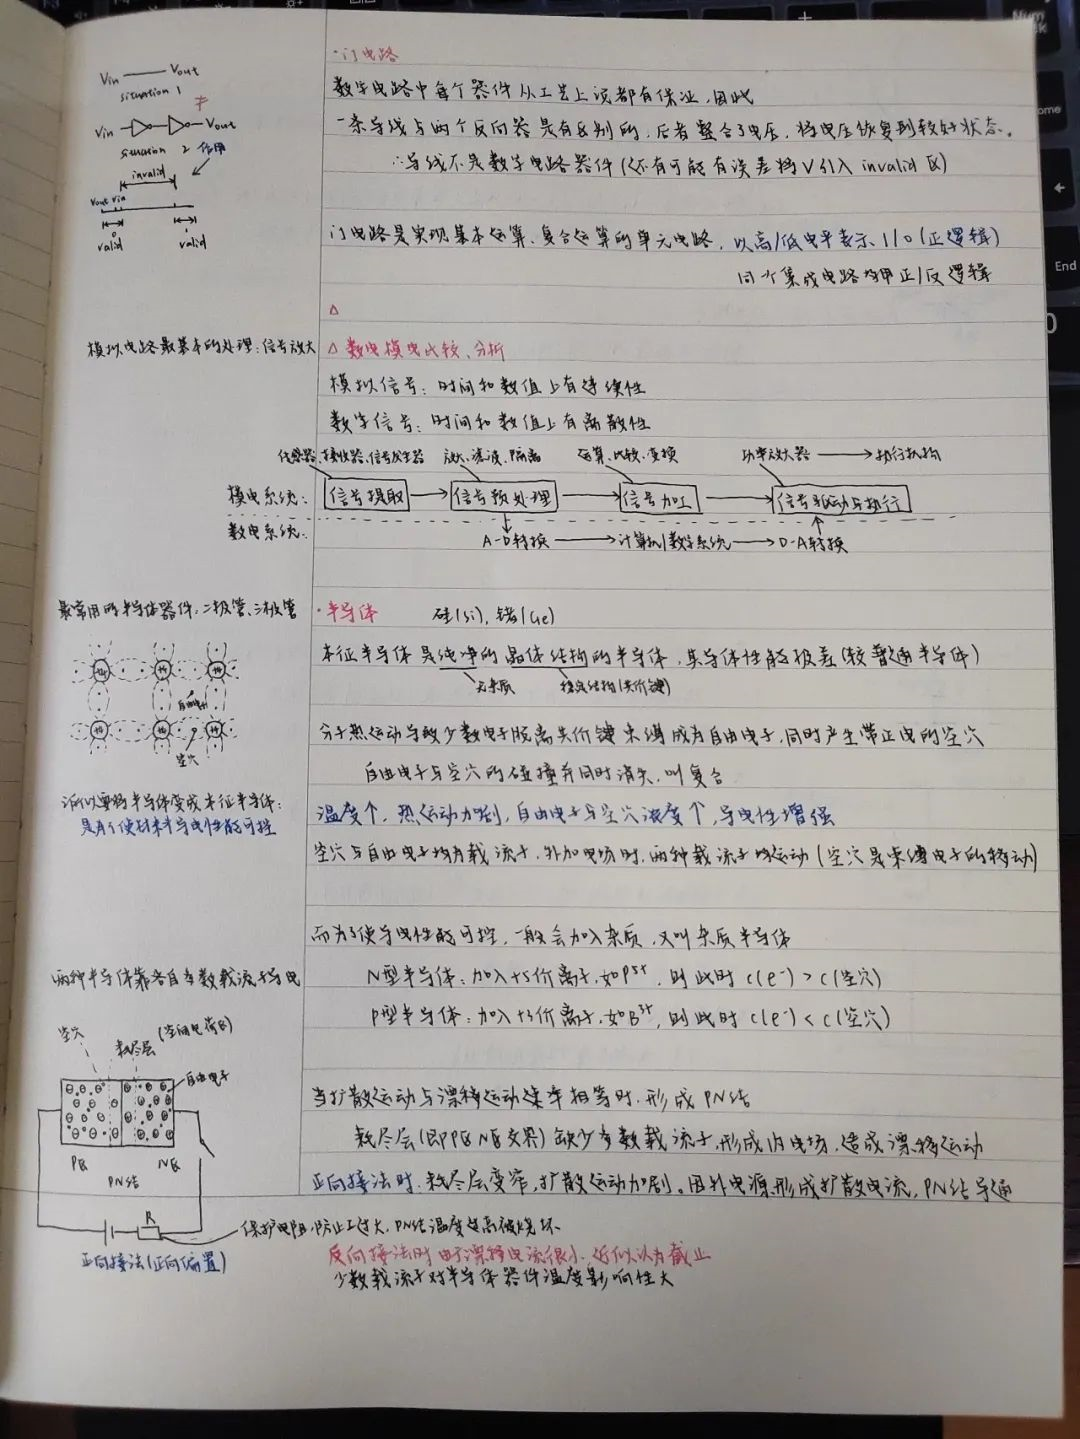 ·门电路
Vin —— Vout
situation 1
≠
数字电路中每个器件从工艺上说都有保证,因此
Vin Vout
situation 2 作用
一条导线与两个反向器是有区别的,后者整合了电压,将电压恢复到较好状态。
∴导线不是数字电路器件(还有可能有误差将V引入 invalid 区)
invalid
Vout Vin
valid valid
门电路是实现基本运算、复合运算的单元电路,以高/低电平表示 1/0(正逻辑)
同一个集成电路均用正/反逻辑
△
模拟电路最基本的处理:信号放大
△数电模电比较、分析
模拟信号:时间和数值上有连续性
数字信号:时间和数值上有离散性
传感器、接收器、信号发生器 放大、滤波、隔离 运算、比较、变换 功率放大器 → 执行机构
模电系统: 信号提取 → 信号预处理 → 信号加工 → 信号驱动与执行
数电系统: A-D转换 → 计算机/数字系统 → D-A转换
最常用的半导体器件:二极管、三极管
·半导体 硅(Si),锗(Ge)
本征半导体是纯净的晶体结构的半导体,其导体性能极差(较普通半导体)
无杂质 稳定结构(共价键)
+4 +4 +4
自由电子
+4 +4 +4
空穴
分子热运动导致少数电子脱离共价键束缚成为自由电子,同时产生带正电的空穴
自由电子与空穴的碰撞并同时消失,叫复合
所以要将半导体变成本征半导体:
是为了使材料导电性能可控
温度↑,热运动加剧,自由电子与空穴浓度↑,导电性增强
空穴与自由电子均为载流子,外加电场时,两种载流子均运动(空穴是束缚电子的移动)
而为了使导电性能可控,一般会加入杂质,又叫杂质半导体
两种半导体靠各自多数载流子导电
N型半导体:加入+5价离子,如P⁵⁺,则此时 c(e⁻)>c(空穴)
P型半导体:加入+3价离子,如B³⁺,则此时 c(e⁻)<c(空穴)
空穴 耗尽层 (空间电荷区)
自由电子
P区 N区
PN结
当扩散运动与漂移运动速率相等时,形成PN结
耗尽层(即P区N区交界)缺少多数载流子,形成内电场,造成漂移运动
正向接法时,耗尽层变窄,扩散运动加剧。因外电源形成扩散电流,PN结导通
R
保护电阻,防止I过大,PN结温度过高被烧坏
正向接法(正向偏置)
反向接法时,由于漂移电流很小,近似认为截止
少数载流子对半导体器件温度影响性大